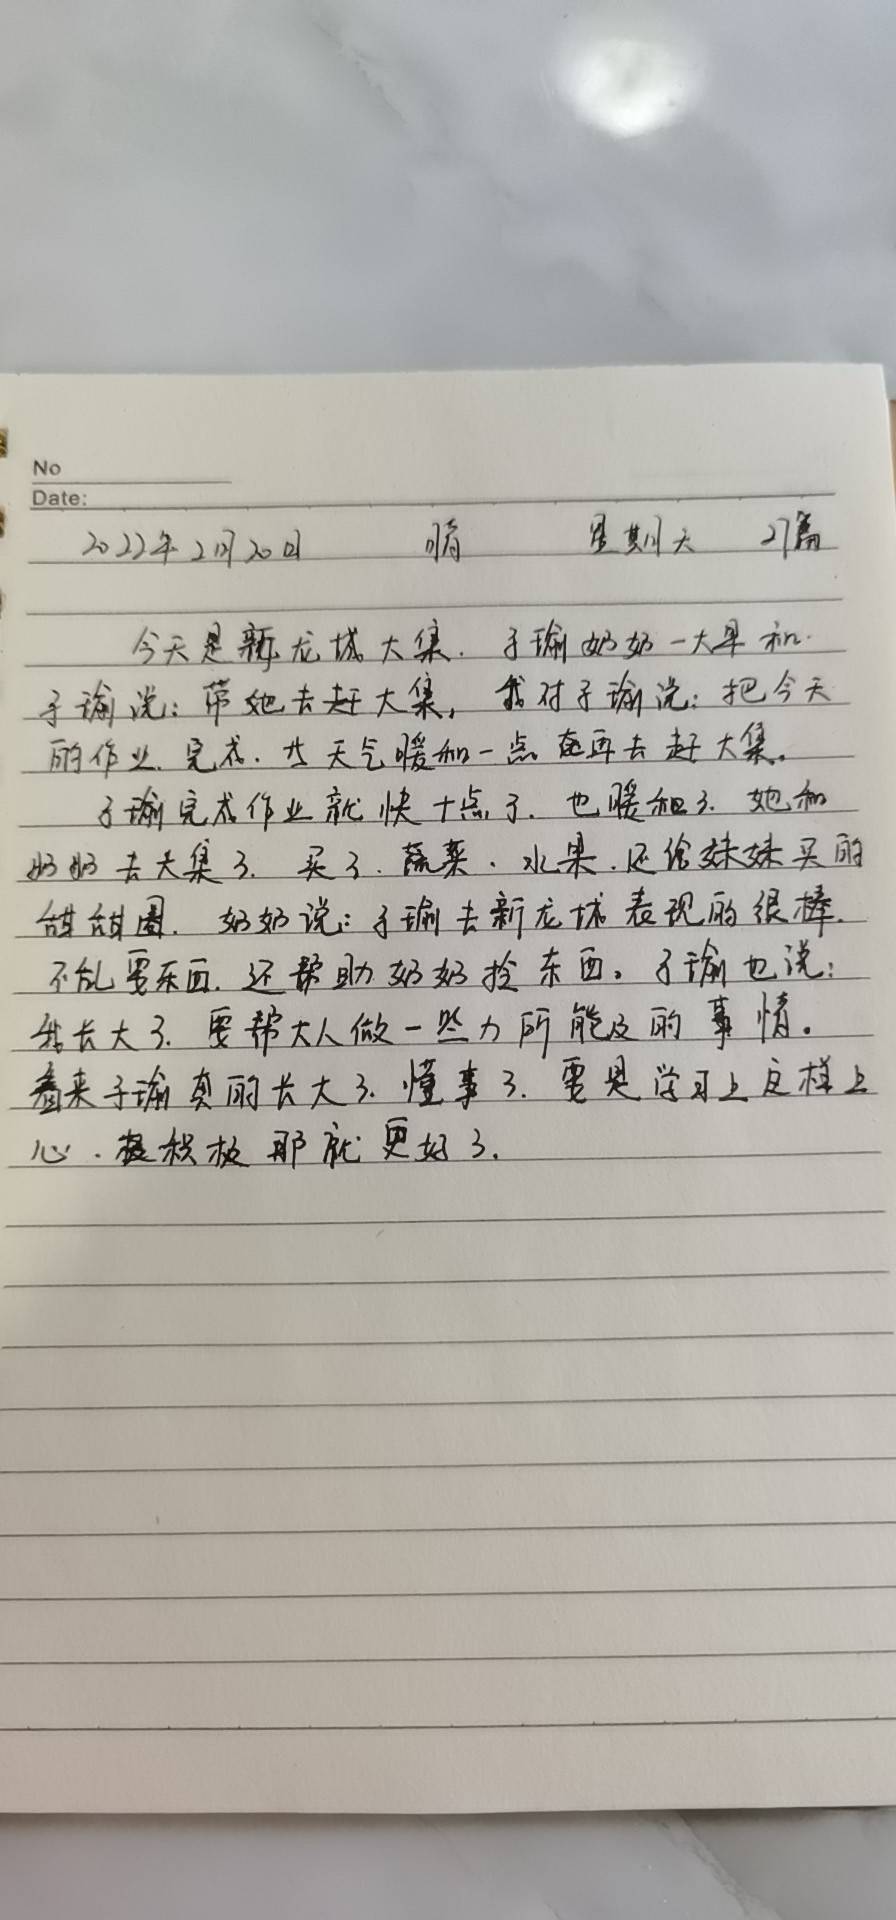 No
Date:
2022年2月20日 晴 星期天 27篇
今天是新龙城大集. 子瑜奶奶一大早和
子瑜说: 带她去赶大集, 我对子瑜说: 把今天
的作业. 完成. 当天气暖和一点在再去赶大集。
子瑜完成作业就快十点了. 也暖和了. 她和
奶奶去大集了. 买了. 蔬菜. 水果. 还给妹妹买的
甜甜圈. 奶奶说: 子瑜去新龙城表现的很棒.
不乱要东西. 还帮助奶奶拎东西。子瑜也说:
我长大了. 要帮大人做一些力所能及的事情。
看来子瑜真的长大了. 懂事了. 要是学习上这样上
心. 积极那就更好了.